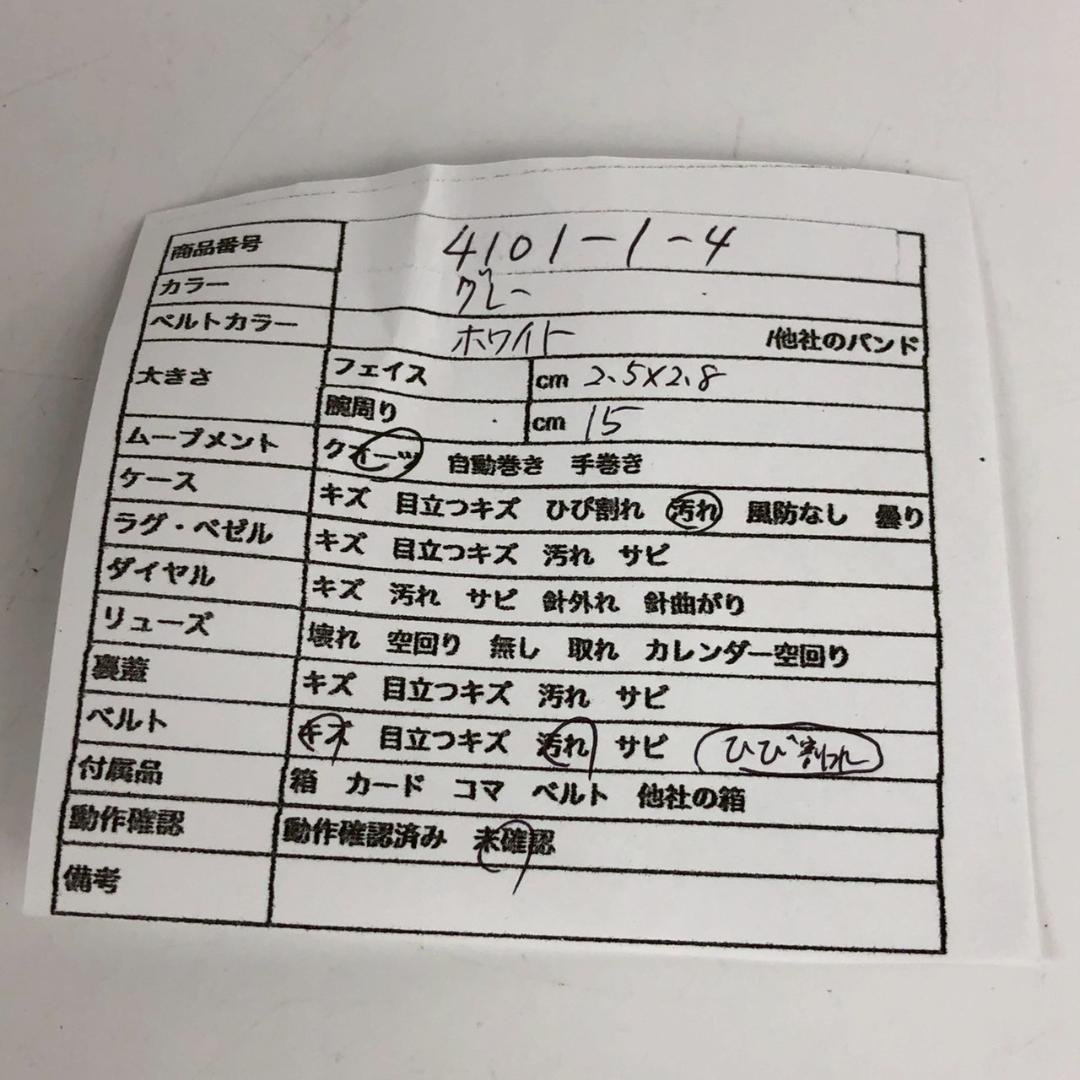 商品番号 4101-1-4
カラー グレー
ベルトカラー ホワイト /他社のバンド
大きさ フェイス cm 2.5×2.8
腕周り cm 15
ムーブメント クォーツ 自動巻き 手巻き
ケース キズ 目立つキズ ひび割れ 汚れ 風防なし 曇り
ラグ・ベゼル キズ 目立つキズ 汚れ サビ
ダイヤル キズ 汚れ サビ 針外れ 針曲がり
リューズ 壊れ 空回り 無し 取れ カレンダー空回り
裏蓋 キズ 目立つキズ 汚れ サビ
ベルト キズ 目立つキズ 汚れ サビ ひび割れ
付属品 箱 カード コマ ベルト 他社の箱
動作確認 動作確認済み 未確認
備考